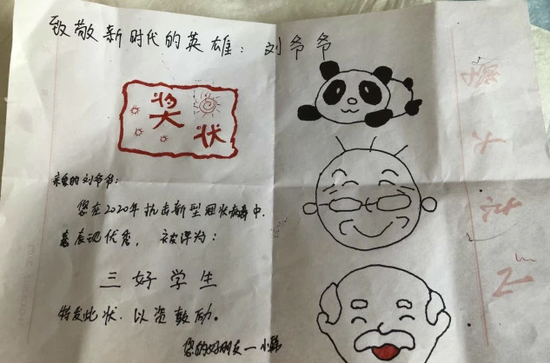 致敬新时代的英雄：刘爷爷
奖状
亲爱的刘爷爷：
您在2020年抗击新型冠状病毒中，
表现优秀，被评为：
三好学生
特发此状，以资鼓励。
您的好朋友一小